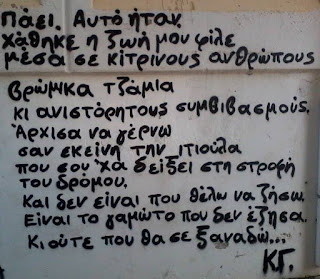 Πάει. Αυτό ήταν.
Χάθηκε η ζωή μου φίλε
μέσα σε κίτρινους ανθρώπους
βρώμικα τζάμια
κι ανιστόρητους συμβιβασμούς.
Άρχισα να γέρνω
σαν εκείνη την ιτιούλα
που σου 'χα δείξει στη στροφή
του δρόμου.
Και δεν είναι που θέλω να ζήσω.
Είναι το γαμώτο που δεν έζησα.
Κι ούτε που θα σε ξαναδώ...
ΚΓ.